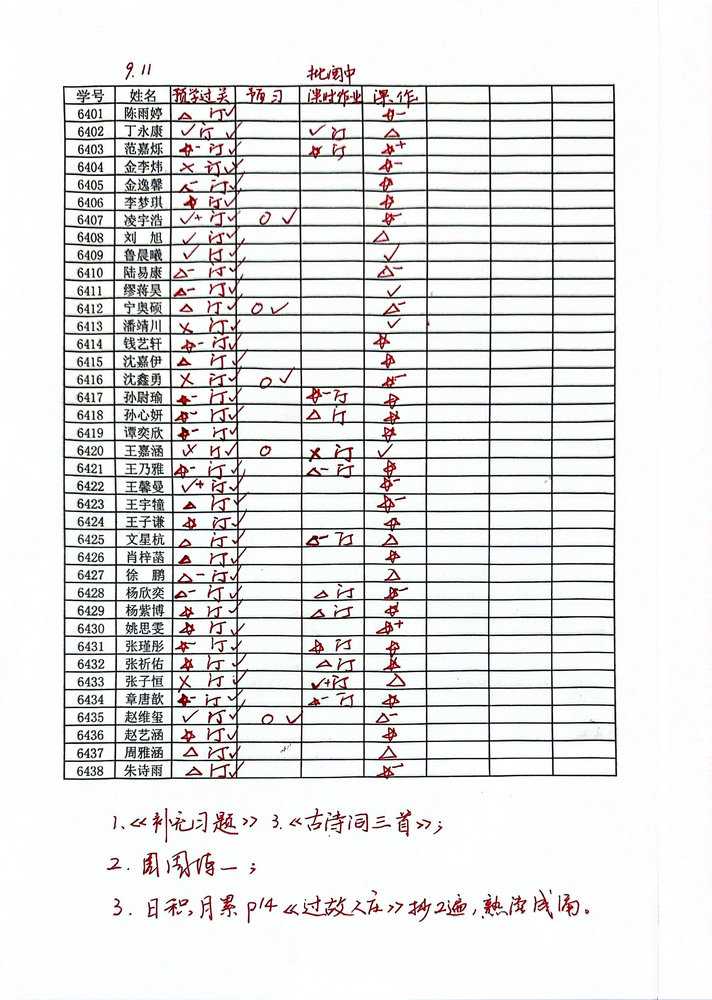 9.11 批阅中
学号 姓名 预学过关 预习 课时作业 课作
6401 陈雨婷 △ 订✓ ☆-
6402 丁永康 ✓订 ✓ ✓ 订 △
6403 范嘉烁 ☆- 订✓ ☆ 订 ☆+
6404 金李炜 × 订✓ ☆-
6405 金逸馨 △- 订✓ ☆
6406 李梦琪 ☆ 订✓ ☆
6407 凌宇浩 ✓+ 订✓ O ✓ ☆-
6408 刘旭 ✓ 订✓ △
6409 鲁晨曦 ✓ 订✓ ✓
6410 陆易康 △- 订✓ △-
6411 缪蒋昊 △- 订✓ ✓
6412 宁奥硕 △ 订✓ O ✓ △-
6413 潘靖川 × 订✓ ✓
6414 钱艺轩 ☆- 订✓ ☆
6415 沈嘉伊 △ 订✓ ☆
6416 沈鑫勇 × 订✓ O ✓ ☆-
6417 孙尉瑜 ☆- 订✓ ☆- 订 ☆
6418 孙心妍 ☆- 订✓ △ 订 ☆
6419 谭奕欣 ☆- 订✓ ☆
6420 王嘉涵 × 订✓ O × 订 ✓
6421 王乃雅 ☆- 订✓ △- 订 ☆
6422 王馨曼 ✓+ 订✓ ☆-
6423 王宇犝 △ 订✓ ☆-
6424 王子谦 ☆ 订✓ ☆
6425 文星杭 △ 订✓ △- 订 △
6426 肖梓菡 △ 订✓ ☆
6427 徐鹏 △- 订✓ △
6428 杨欣奕 △- 订✓ △ 订 ☆-
6429 杨紫博 ☆ 订✓ △ 订 ☆
6430 姚思雯 ☆ 订✓ ☆+
6431 张瑾彤 ☆- 订✓ ☆ 订 ☆
6432 张祈佑 ☆ 订✓ △ 订 ☆
6433 张子恒 × 订✓ ✓+订 △
6434 章唐歆 ☆- 订✓ ☆- 订 ☆
6435 赵维玺 ✓ 订✓ O ✓ △-
6436 赵艺涵 ☆ 订✓ ☆
6437 周雅涵 △ 订✓ △
6438 朱诗雨 △ 订✓ ☆-
1.《补充习题》3.《古诗词三首》；
2. 周周练一；
3. 日积月累 p14《过故人庄》抄2遍，熟读成诵。